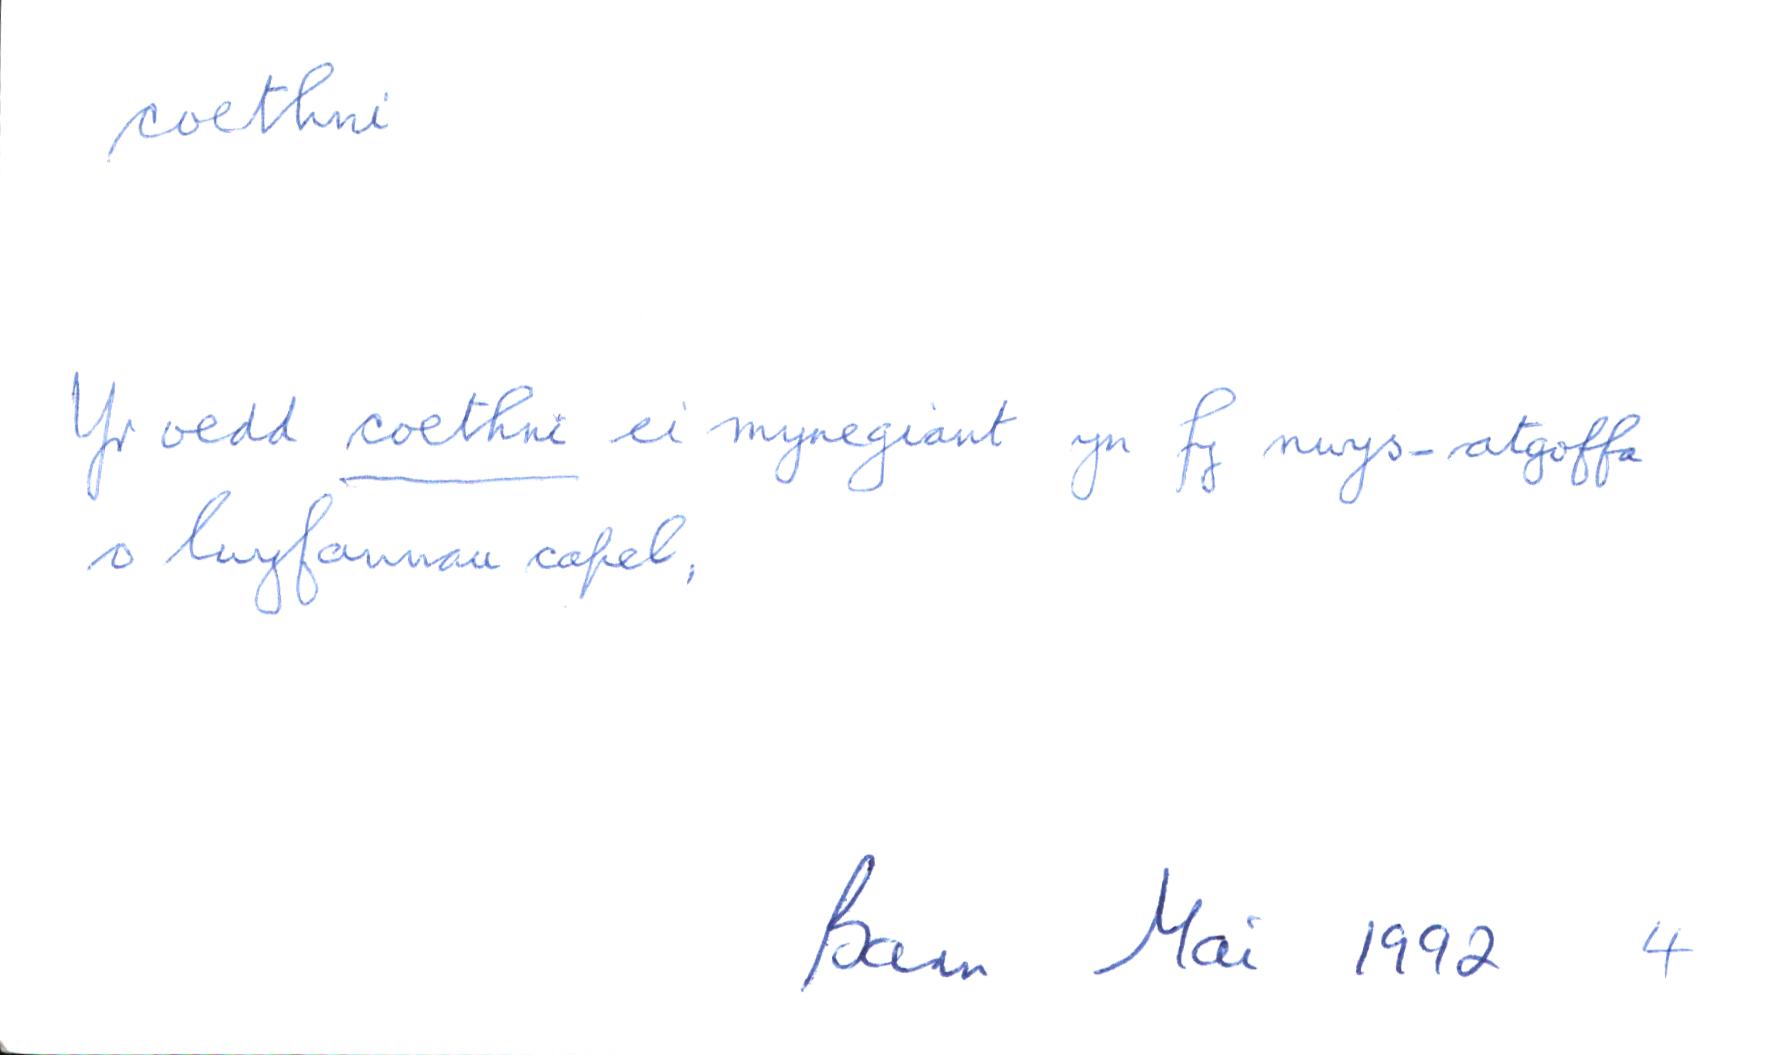 coethni
Yr oedd coethni ei mynegiant yn fy nwys-atgoffa
o lwyfannau capel,
Barn Mai 1992 4